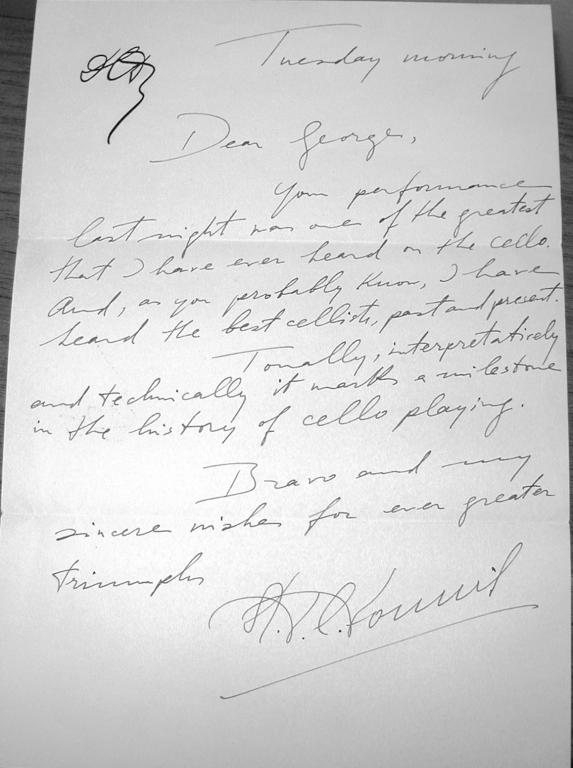 Tuesday morning
Dear George,
Your performance
last night was one of the greatest
that I have ever heard on the cello.
And, as you probably know, I have
heard the best cellists, past and present.
Tonally, interpretatively
and technically it marks a milestone
in the history of cello playing.
Bravo and my
sincere wishes for ever greater
triumphs